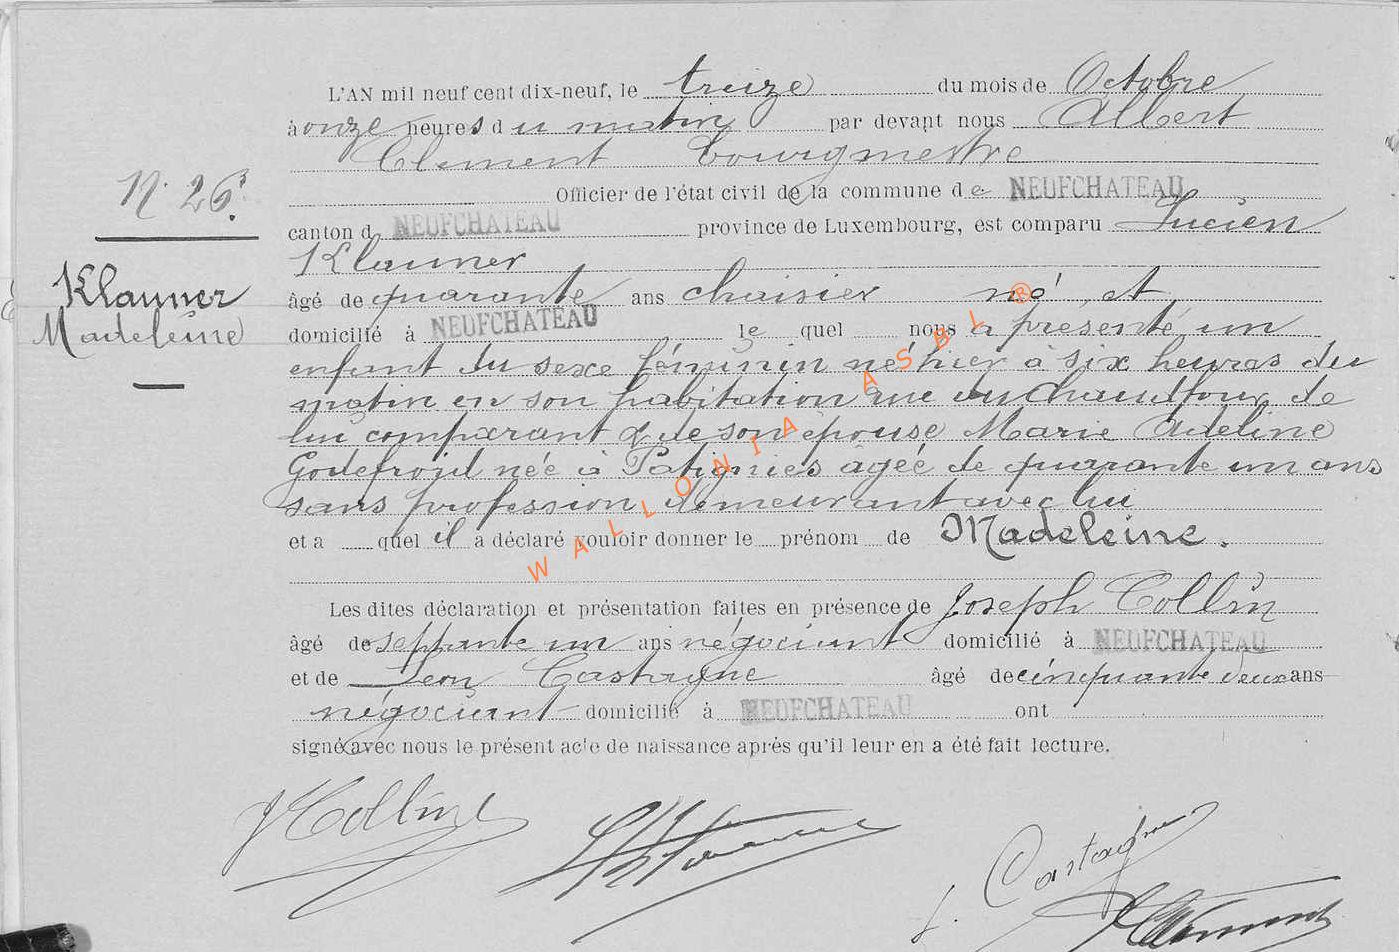 L'AN mil neuf cent dix-neuf, le treize du mois de Octobre
à onze heures du matin par devant nous Albert
Clement bourgmestre
N. 26.
Officier de l'état civil de la commune de NEUFCHATEAU
canton d NEUFCHATEAU province de Luxembourg, est comparu Lucien
Klauner
Klauner
Madeleine
âgé de quarante ans chaisier né et
domicilié à NEUFCHATEAU le quel nous a presenté un
enfant du sexe féminin né hier à six heures du
matin en son habitation rue du Chaudfour de
lui comparant & de son épouse Marie Adeline
Godefroid née à Patignies âgée de quarante un ans
sans profession demeurant avec lui
et a quel il a déclaré vouloir donner le prénom de Madeleine.
Les dites déclaration et présentation faites en présence de Joseph Collin
âgé de septante un ans négociant domicilié à NEUFCHATEAU
et de Leon Castagne âgé de cinquante deux ans
négociant domicilié à NEUFCHATEAU ont
signé avec nous le présent acte de naissance après qu'il leur en a été fait lecture.
J Collin
L. Castagne
WALLONIA ASBL ®